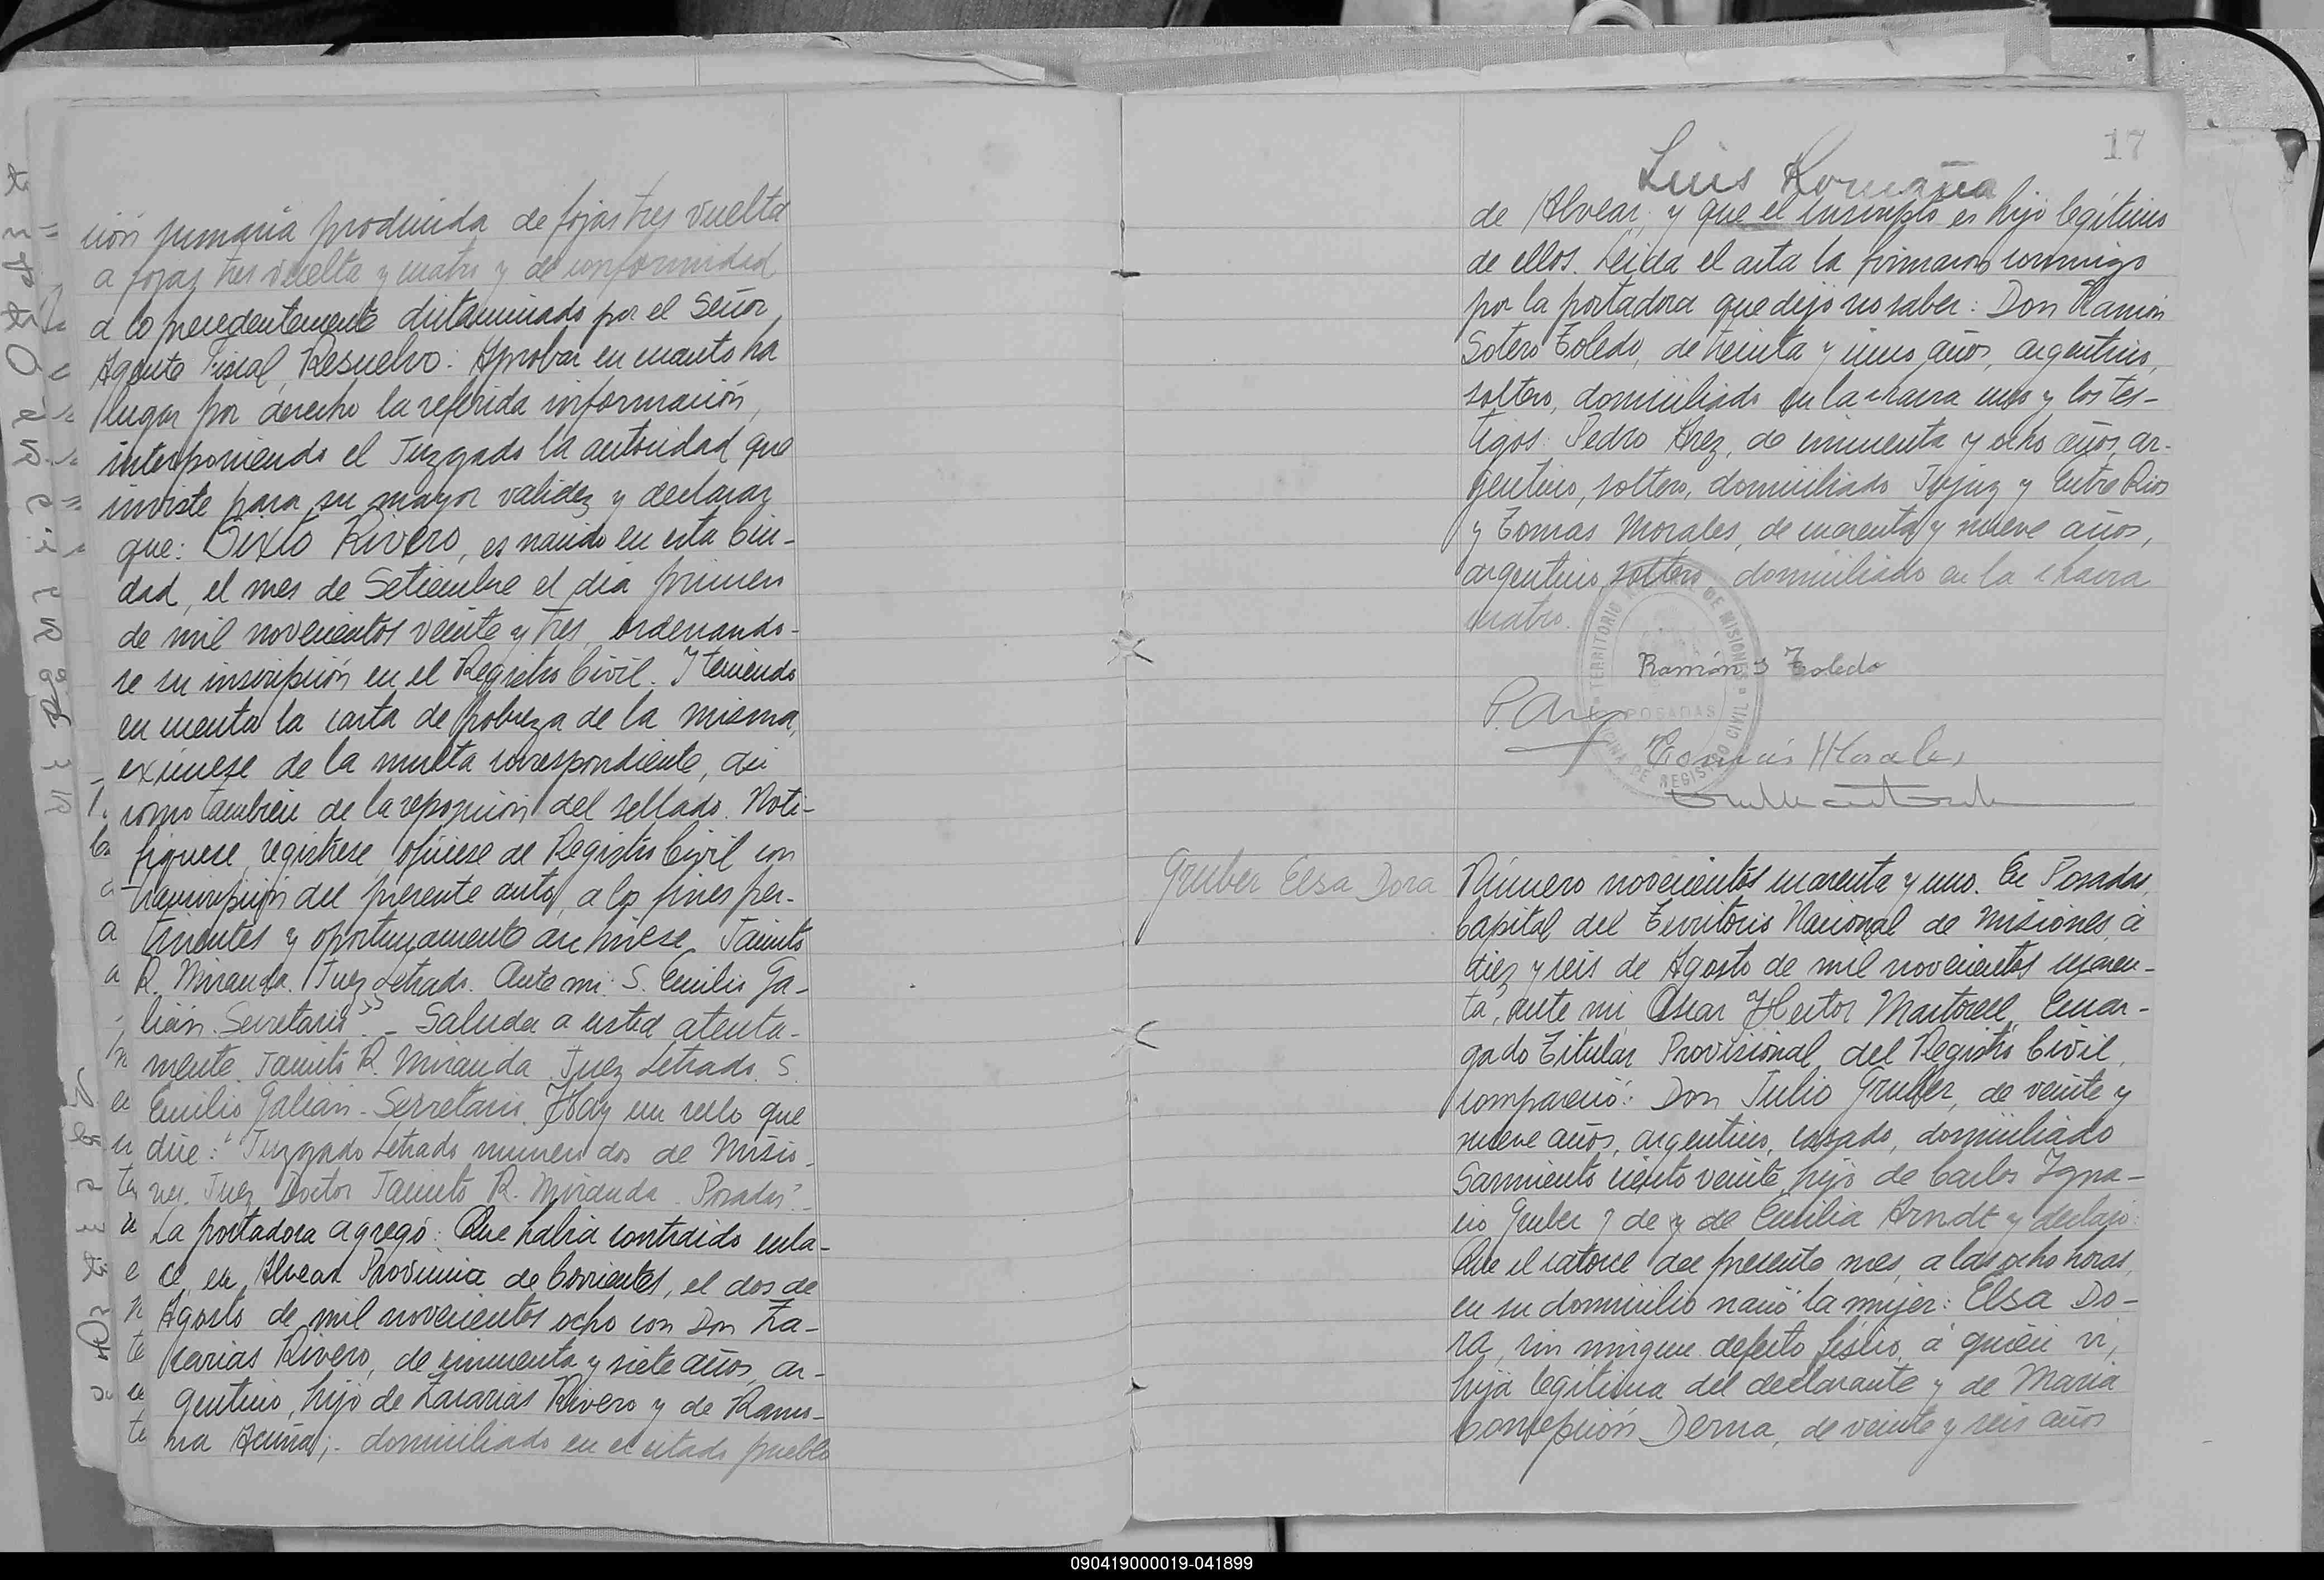 ción sumaria producida de fojas tres vuelta
a fojas tres vuelta y cuatro y de conformidad
a lo precedentemente dictaminado por el Señor
Agente Fiscal, Resuelvo: Aprobar en cuanto ha
lugar por derecho la referida información,
interponiendo el Juzgado la autoridad que
inviste para su mayor validez y declarar
que: Sixto Rivero, es nacido en esta Ciu-
dad, el mes de Setiembre el día primero
de mil novecientos veinte y tres, ordenando-
se su inscripción en el Registro Civil. Y teniendo
en cuenta la carta de pobreza de la misma,
exímese de la multa correspondiente, así
como también de la reposición del sellado. Noti-
fíquese, regístrese, ofíciese de Registro Civil con
transcripción del presente auto, a los fines per-
tinentes y oportunamente archívese. Jacinto
R. Miranda. Juez Letrado. Ante mi: S. Emilio Ga-
lián. Secretario". - Saluda a usted atenta-
mente. Jacinto R. Miranda. Juez Letrado. S.
Emilio Galián - Secretario. Hay un sello que
dice: "Juzgado Letrado numero dos de Misio-
nes. Juez Doctor Jacinto R. Miranda. Posadas".-
La portadora agregó: Que había contraido enla-
ce, en Alvear Provincia de Corrientes, el dos de
Agosto de mil novecientos ocho con Don Za-
carias Rivero, de cincuenta y siete años, ar-
gentino, hijo de Zacarias Rivero y de Ramo-
na Acuña;- domiciliado en el citado pueblo
17
Luis Romaña
de Alvear, y que el inscripto es hijo legítimo
de ellos. Leída el acta la firmaron conmigo
por la portadora que dijo no saber: Don Ramón
Sotero Toledo, de treinta y años, argentino,
soltero, domiciliado en la chacra uno y los tes-
tigos: Pedro Arez, de cincuenta y ocho años, ar-
gentino, soltero, domiciliado Jujuy y Entre Rios
y Tomas Morales, de cuarenta y nueve años,
argentino, soltero, domiciliado en la chacra
cuatro.
TERRITORIO NACIONAL DE MISIONES
POSADAS
OFICINA DE REGISTRO CIVIL
Ramón S Toledo
P. Arez
Tomás Morales
Gruber Elsa Dora
Número novecientos cuarenta y uno. En Posadas,
Capital del Territorio Nacional de Misiones, a
diez y seis de Agosto de mil novecientos cuaren-
ta, ante mi Oscar Hector Martorell, Encar-
gado Titular Provisional del Registro Civil,
compareció: Don Julio Gruber, de veinte y
nueve años, argentino, casado, domiciliado
Sarmiento ciento veinte, hijo de Carlos Igna-
cio Gruber y de y de Emilia Arndt y declaró:
Que el catorce del presente mes, a las ocho horas,
en su domicilio nació la mujer: Elsa Do-
ra, sin ningun defecto físico, a quién vi,
hija legitima del declarante y de Maria
Concepción Derna, de veinte y seis años
090419000019-041899